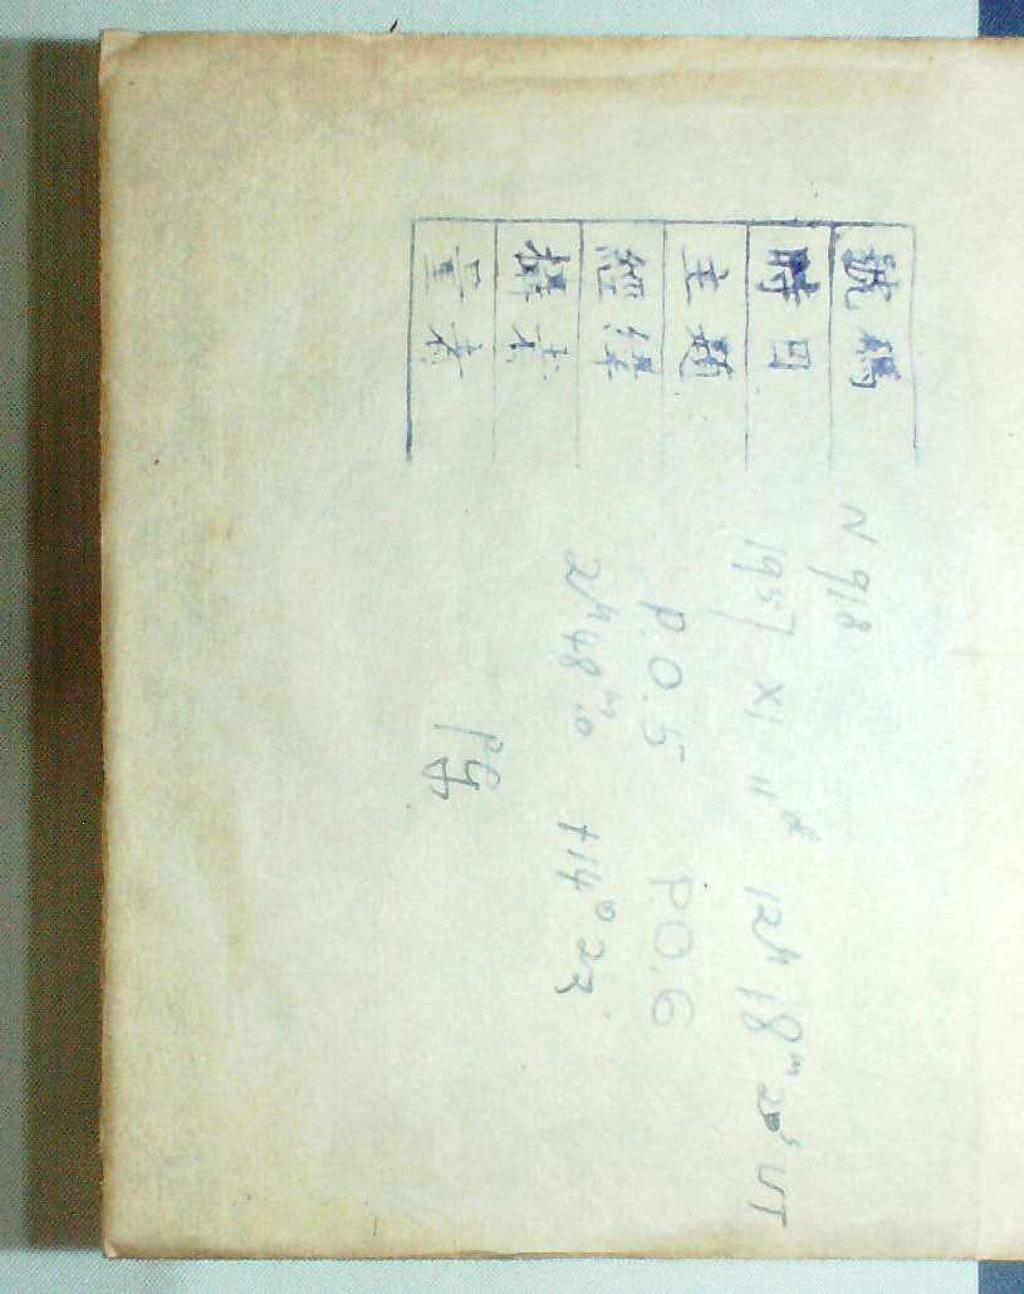 號碼 N 918
時日 1957 XI 11ᵈ 12ʰ 18ᵐ 20ˢ UT
主題 P.O. 5 P.O. 6
經緯 2ʰ48ᵐ.0 +14° 23'
攝者 PY
量者